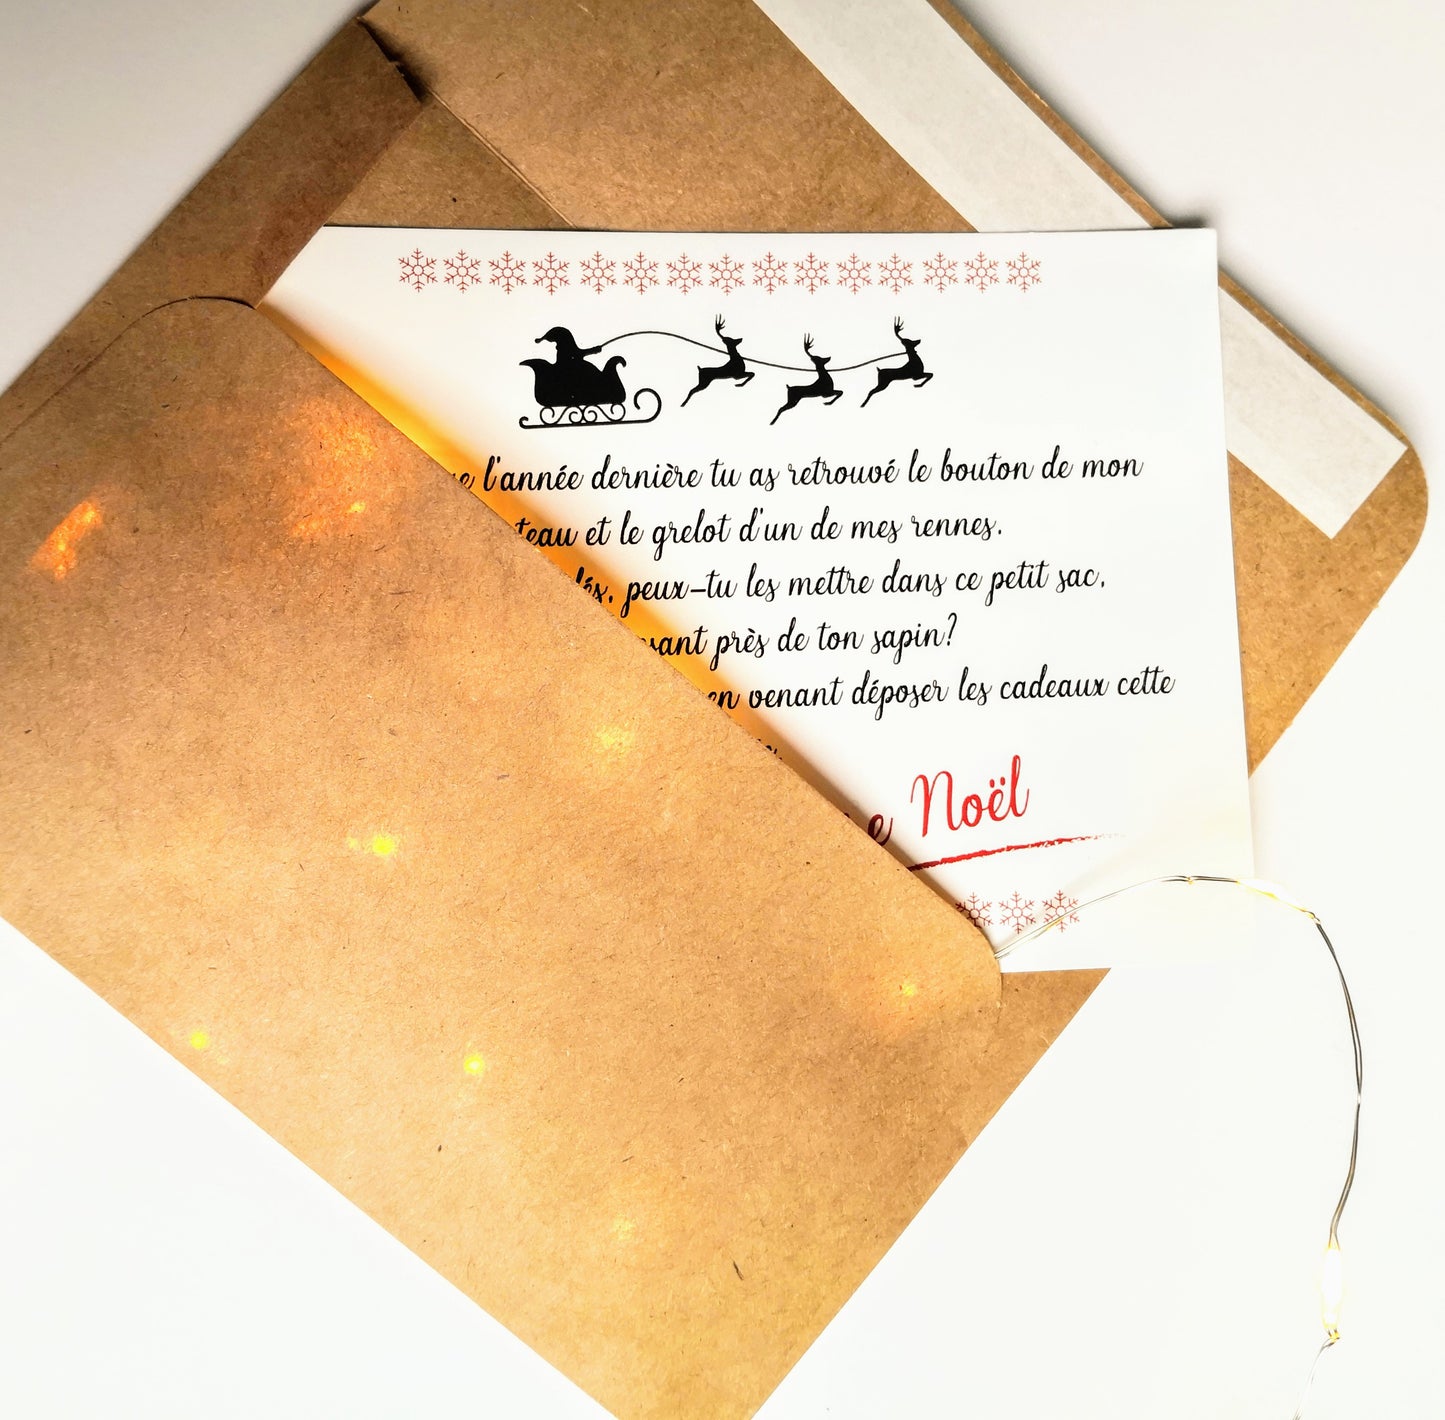 l'année dernière tu as retrouvé le bouton de mon
et le grelot d'un de mes rennes.
peux-tu les mettre dans ce petit sac,
près de ton sapin?
en venant déposer les cadeaux cette
Noël